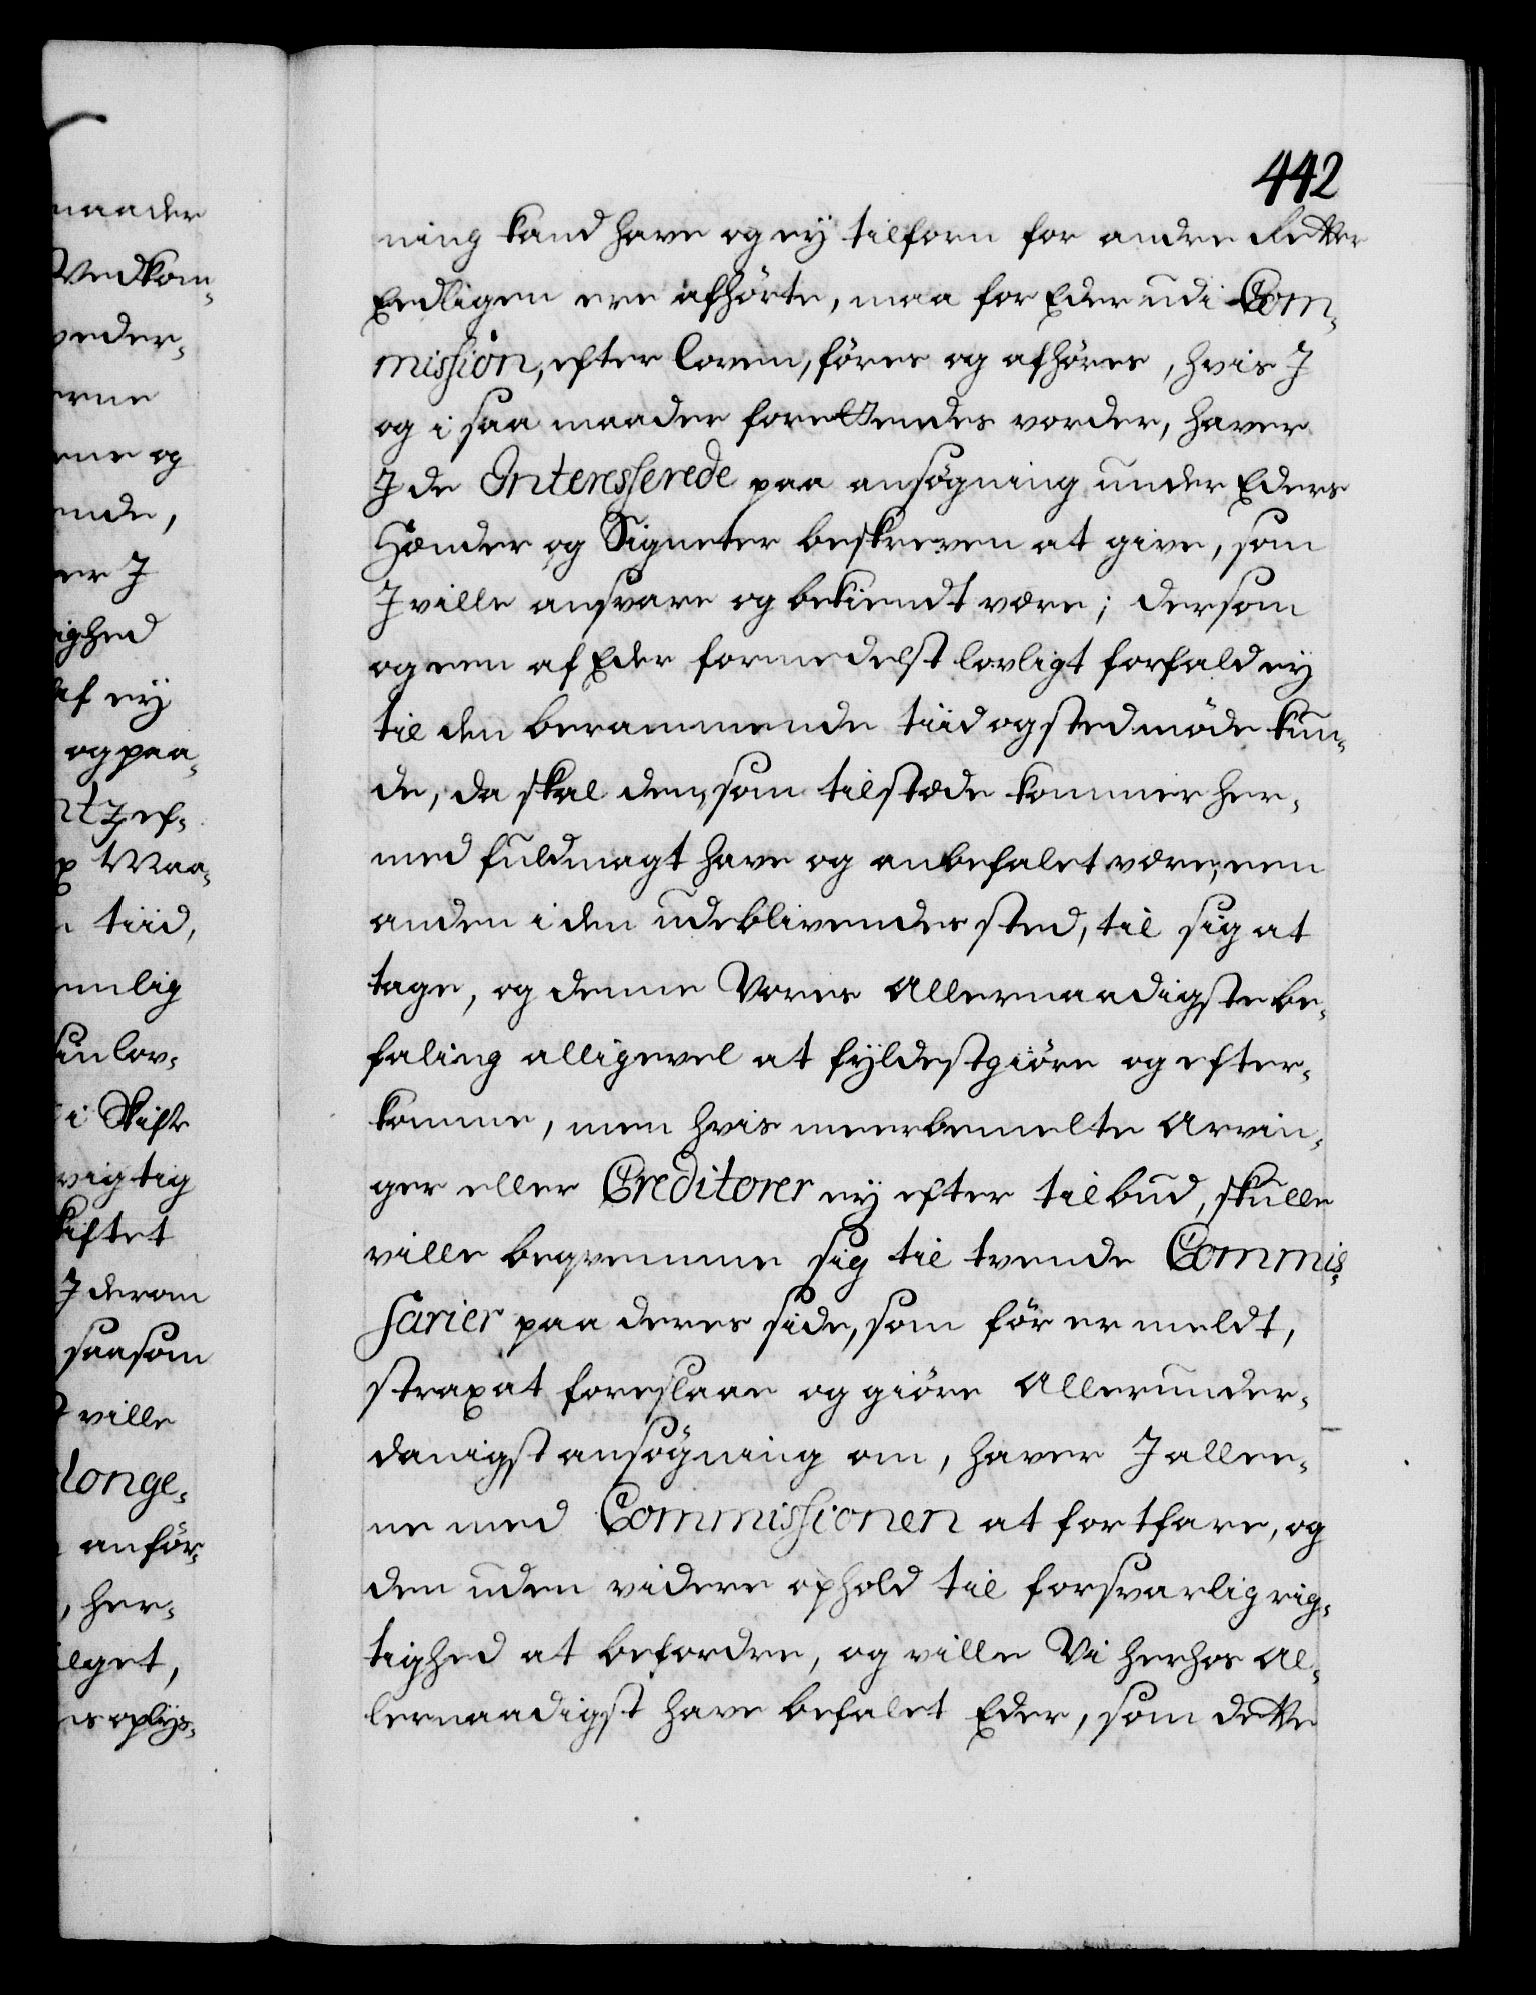 442
ning kand have og ey tilforn for andre Retter
Eedligen ere afhörte, maa for Eder udi Com-
mission, efter loven, föres og afhöres, hvis I
og i saa maader forettendes vorder, haver
I de Interesserede paa ansögning under Eders
Hænder og Signeter beskreven at give, som
I ville ansvare og bekiendt være; dersom
og een af Eder formedelst lovligt forfald ey
til den berammende tiid og sted möde kun-
de, da skal den, som tilstæde kommer her-
med fuldmagt have og anbefalet være, een
anden i den udeblivendes sted, til sig at
tage, og denne Vores Allernaadigste be-
faling alligevel at fyldestgiöre og efter-
komme, men hvis meerbemelte Arvin-
ger eller Creditorer ey efter tilbud, skulle
ville beqvemme sig til tvende Commis-
sarier paa deres side, som för er meldt,
strax at foreslaae og giöre Allerunder-
danigst ansögning om, haver I allee-
ne med Commissionen at fortfare, og
den uden videre ophold til forsvarlig rig-
tighed at befordre, og ville Vi herhos Al-
lernaadigst have befalet Eder, som dette
maader
Vedkom-
veder-
erne
ene og
ende,
er I
ighed
af ey
og paa-
nt I ef-
Maa-
tiid,
emlig
sin lov-
i Skift
vigtig
kiftet
I derom
saasom
ville
longe-
anför-
, her-
lget,
es oplys-